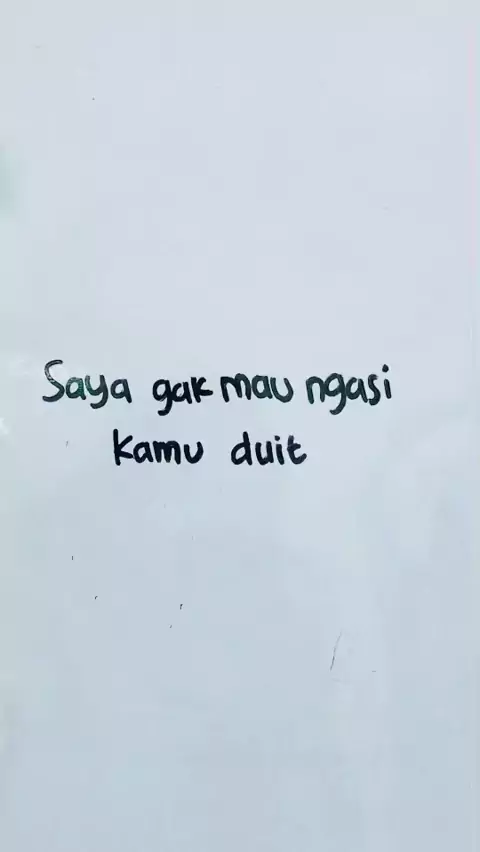 Saya gak mau ngasi
kamu duit